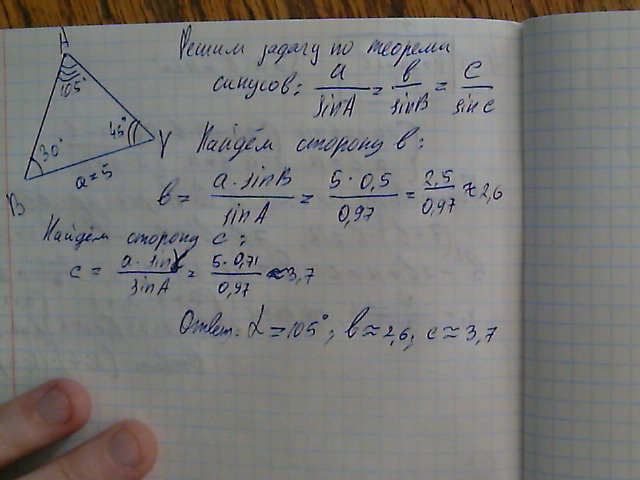 A
105°
30°
45°
γ
a=5
B
Решим задачу по теореми
синусов: a/sinA = в/sinB = c/sinc
Найдём сторону в:
в = a·sinB/sinA = 5·0,5/0,97 = 2,5/0,97 ≈ 2,6
Найдём сторону с:
c = a·sinγ/sinA = 5·0,71/0,97 ≈ 3,7
Ответ: α = 105°; в ≈ 2,6; c ≈ 3,7